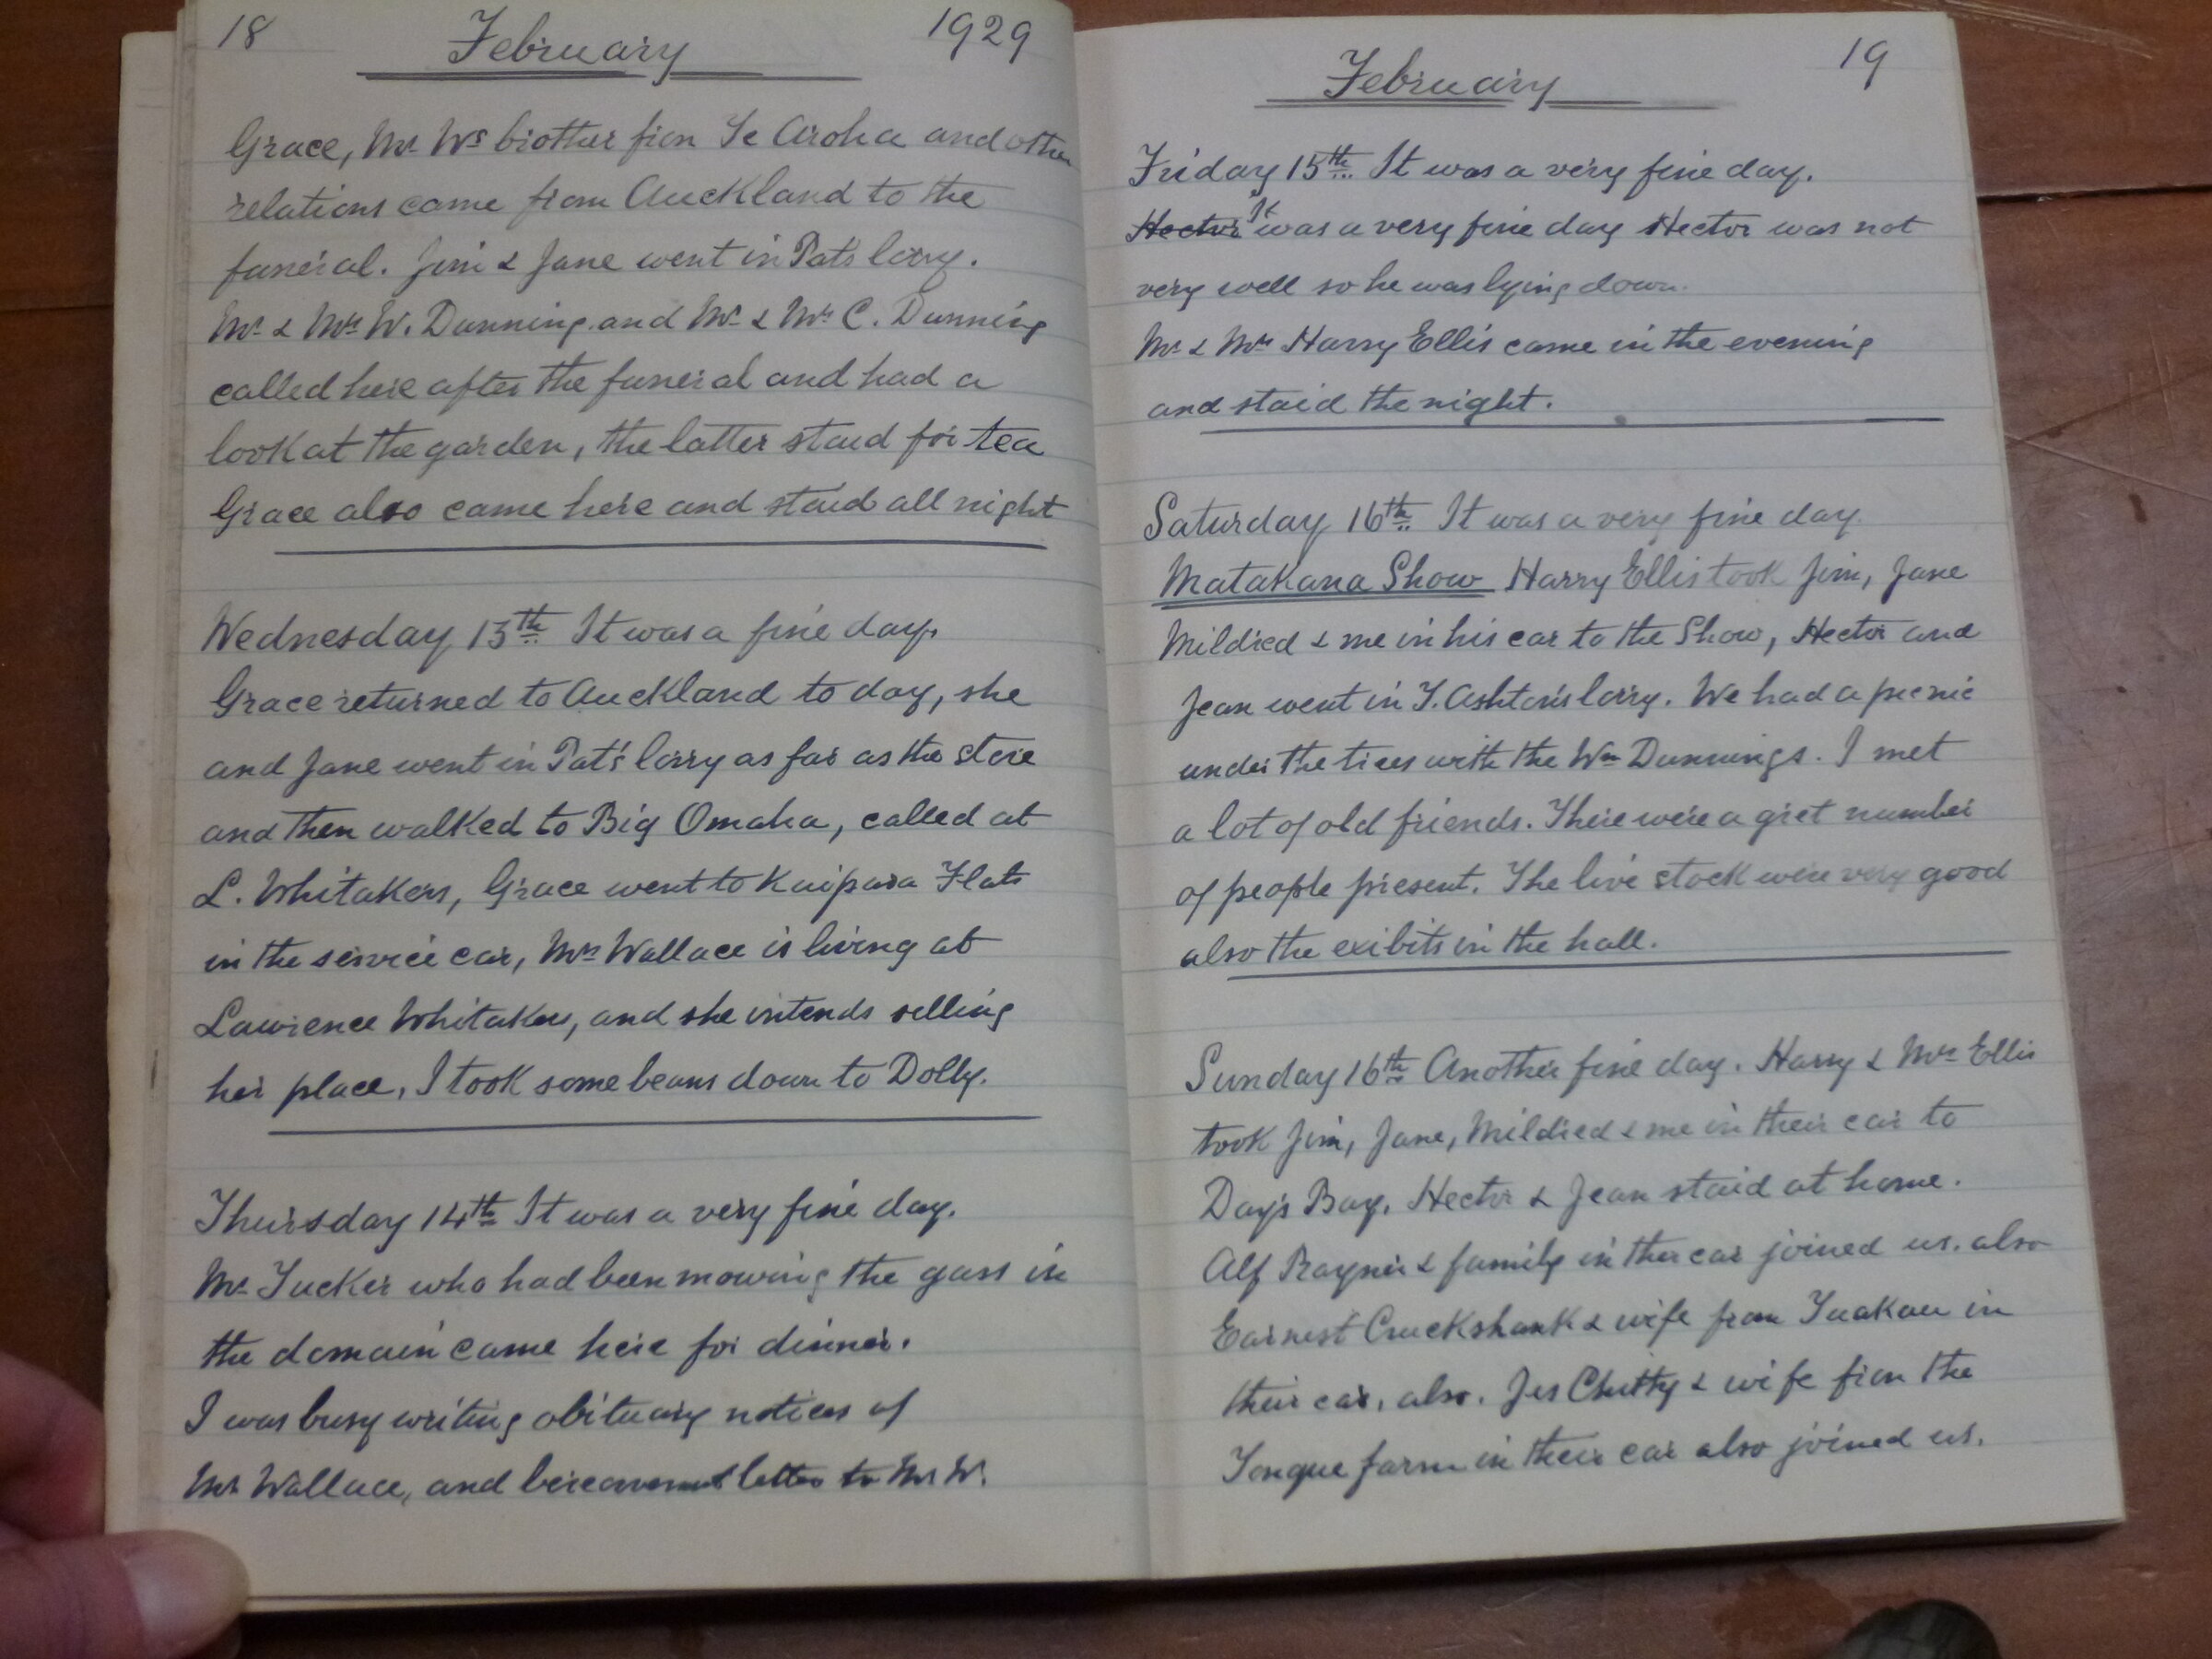 18 February 1929
Grace, Mr Ws brother from Te Aroha and other
relations came from Auckland to the
funeral. Jim & Jane went in Pats lorry.
Mr & Mrs W. Dunning and Mr & Mrs C. Dunning
called here after the funeral and had a
look at the garden, the latter staid for tea
Grace also came here and staid all night
Wednesday 13th It was a fine day.
Grace returned to Auckland to day, she
and Jane went in Pat's lorry as far as the store
and then walked to Big Omaha, called at
L. Whitakers, Grace went to Kaipara Flats
in the service car, Mrs Wallace is living at
Lawrence Whitakers, and she intends selling
her place, I took some beans down to Dolly.
Thursday 14th It was a very fine day.
Mr Tucker who had been mowing the gass in
the domain came here for dinner.
I was busy writing obituary notices of
Mr Wallace, and bereavement letter to Mrs W.
February 19
Friday 15th It was a very fine day.
Hector It was a very fine day Hector was not
very well so he was lying down.
Mr & Mrs Harry Ellis came in the evening
and staid the night.
Saturday 16th It was a very fine day.
Matakana Show Harry Ellis took Jim, Jane
Mildred & me in his car to the Show, Hector and
Jean went in T. Ashton's lorry. We had a picnic
under the trees with the Wm Dunnings. I met
a lot of old friends. There were a gret number
of people present. The live stock were very good
also the exibits in the hall.
Sunday 16th Another fine day. Harry & Mrs Ellis
took Jim, Jane, Mildred & me in their car to
Day's Bay. Hector & Jean staid at home.
Alf Rayner & family in ther car joined us. also
Earnest Cruckshank & wife from Tuakau in
their car, also. Jes Chitty & wife from the
Tongue farm in their car also joined us.